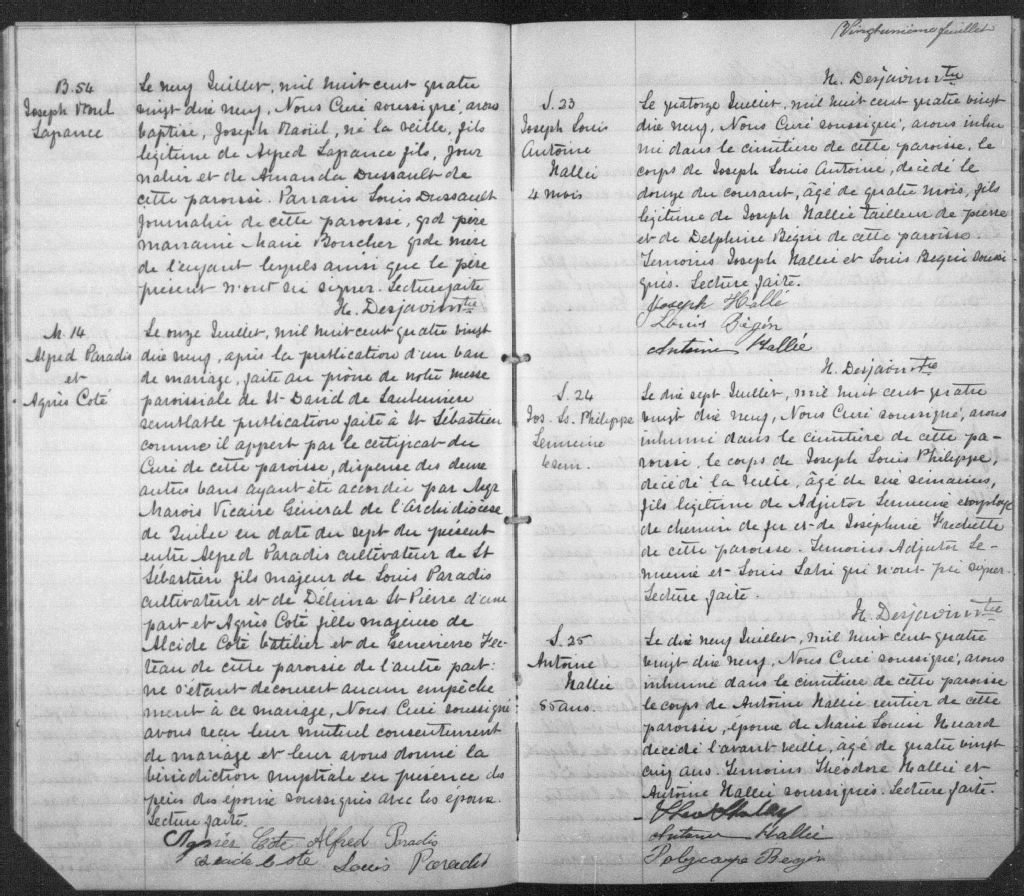 B. 54
Joseph Raoul
Lapance
Le neuf Juillet, mil huit cent quatre
vingt dix neuf, Nous Curé soussigné, avons
baptisé, Joseph Raoul, né la veille, fils
légitime de Alfred Lapance fils, jour
nalier et de Amanda Dussault de
cette paroisse. Parrain Louis Dussault
Journalier de cette paroisse, grd père
marraine Marie Boucher grde mère
de l'enfant lesquels ainsi que le père
présent n'ont su signer. Lecture faite
H. Desjavins Ptre
M. 14
Alfred Paradis
et
Agnès Coté
Le onze Juillet, mil huit cent quatre vingt
dix neuf, après la publication d'un ban
de mariage, faite au prône de notre messe
paroissiale de St David de Lauberivière
semblable publication faite à St Sébastien
comme il appert par le certificat du
Curé de cette paroisse, dispense des deux
autres bans ayant été accordée par Mgr
Marois Vicaire Général de l'Archidiocèse
de Québec en date du sept du présent
entre Alfred Paradis cultivateur de St
Sébastien fils majeur de Louis Paradis
cultivateur et de Délima St Pierre d'une
part et Agnès Coté fille majeure de
Alcide Coté batelier et de Geneviève Fec-
teau de cette paroisse de l'autre part:
ne s'étant découvert aucun empêche
ment à ce mariage, Nous Curé soussigné
avons reçu leur mutuel consentement
de mariage et leur avons donné la
bénédiction nuptiale en présence des
pères des époux soussignés avec les époux.
Lecture faite.
Agnès Coté Alfred Paradis
Alcide Coté Louis Paradis
Vingtunième feuillet
H. Desjavins Ptre
S. 23
Joseph Louis
Antoine
Hallié
4 mois
Le quatorze Juillet, mil huit cent quatre vingt
dix neuf, Nous Curé soussigné, avons inhu
mé dans le cimetière de cette paroisse, le
corps de Joseph Louis Antoine, décédé le
douze du courant, âgé de quatre mois, fils
légitime de Joseph Hallié tailleur de pierre
et de Delphine Bégin de cette paroisse.
Temoins Joseph Hallié et Louis Begin soussi-
gnés. Lecture faite.
Joseph Hallé
Louis Bégin
Antoine Hallié
H. Desjavins Ptre
S. 24
Jos. Ls. Philippe
Lemieux
6 sem.
Le dix sept Juillet, mil huit cent quatre
vingt dix neuf, Nous Curé soussigné, avons
inhumé dans le cimetière de cette pa-
roisse, le corps de Joseph Louis Philippe,
décédé la veille, âgé de six semaines,
fils légitime de Adjutor Lemieux employé
de chemin de fer et de Josephine Frechette
de cette paroisse. Temoins Adjutor Le-
mieux et Louis qui n'ont pu signer.
Lecture faite.
H. Desjavins Ptre
S. 25
Antoine
Hallié
85 ans.
Le dix neuf Juillet, mil huit cent quatre
vingt dix neuf, Nous Curé soussigné, avons
inhumé dans le cimetière de cette paroisse
le corps de Antoine Hallié rentier de cette
paroisse, époux de Marie Louise Huard
décédé l'avant veille, âgé de quatre vingt
cinq ans. Temoins Théodore Hallié et
Antoine Hallié soussignés. Lecture faite.
Antoine Hallié
Polycarpe Begin